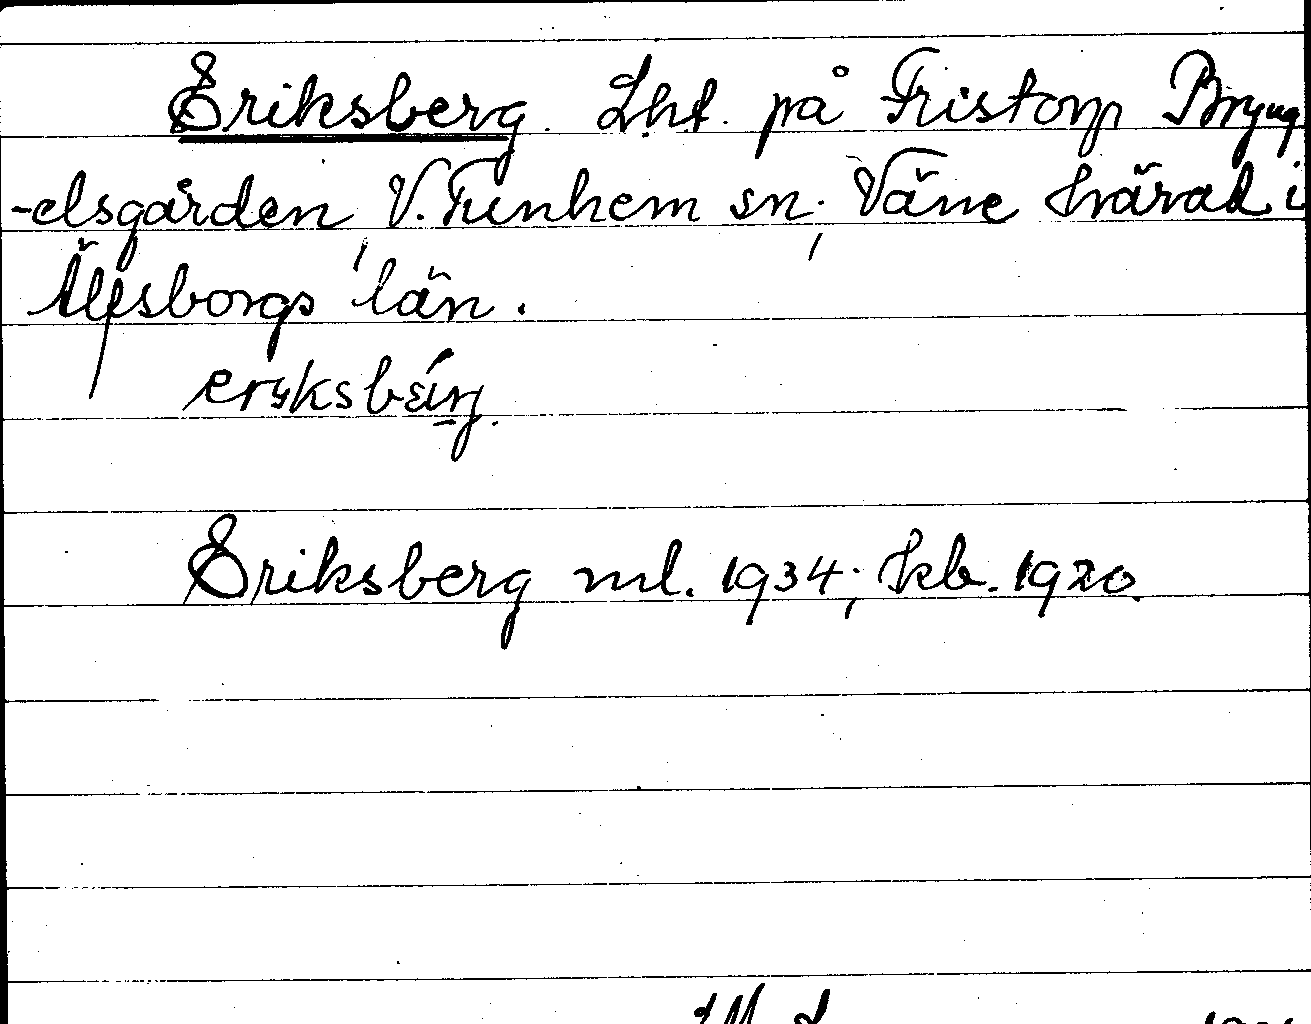 Eriksberg. Lht. på Fristorp Bryng
-elsgården, V. Tunhem sn; Väne härad i
Älfsborgs län.
Eriksberg ml. 1934; kb. 1920.